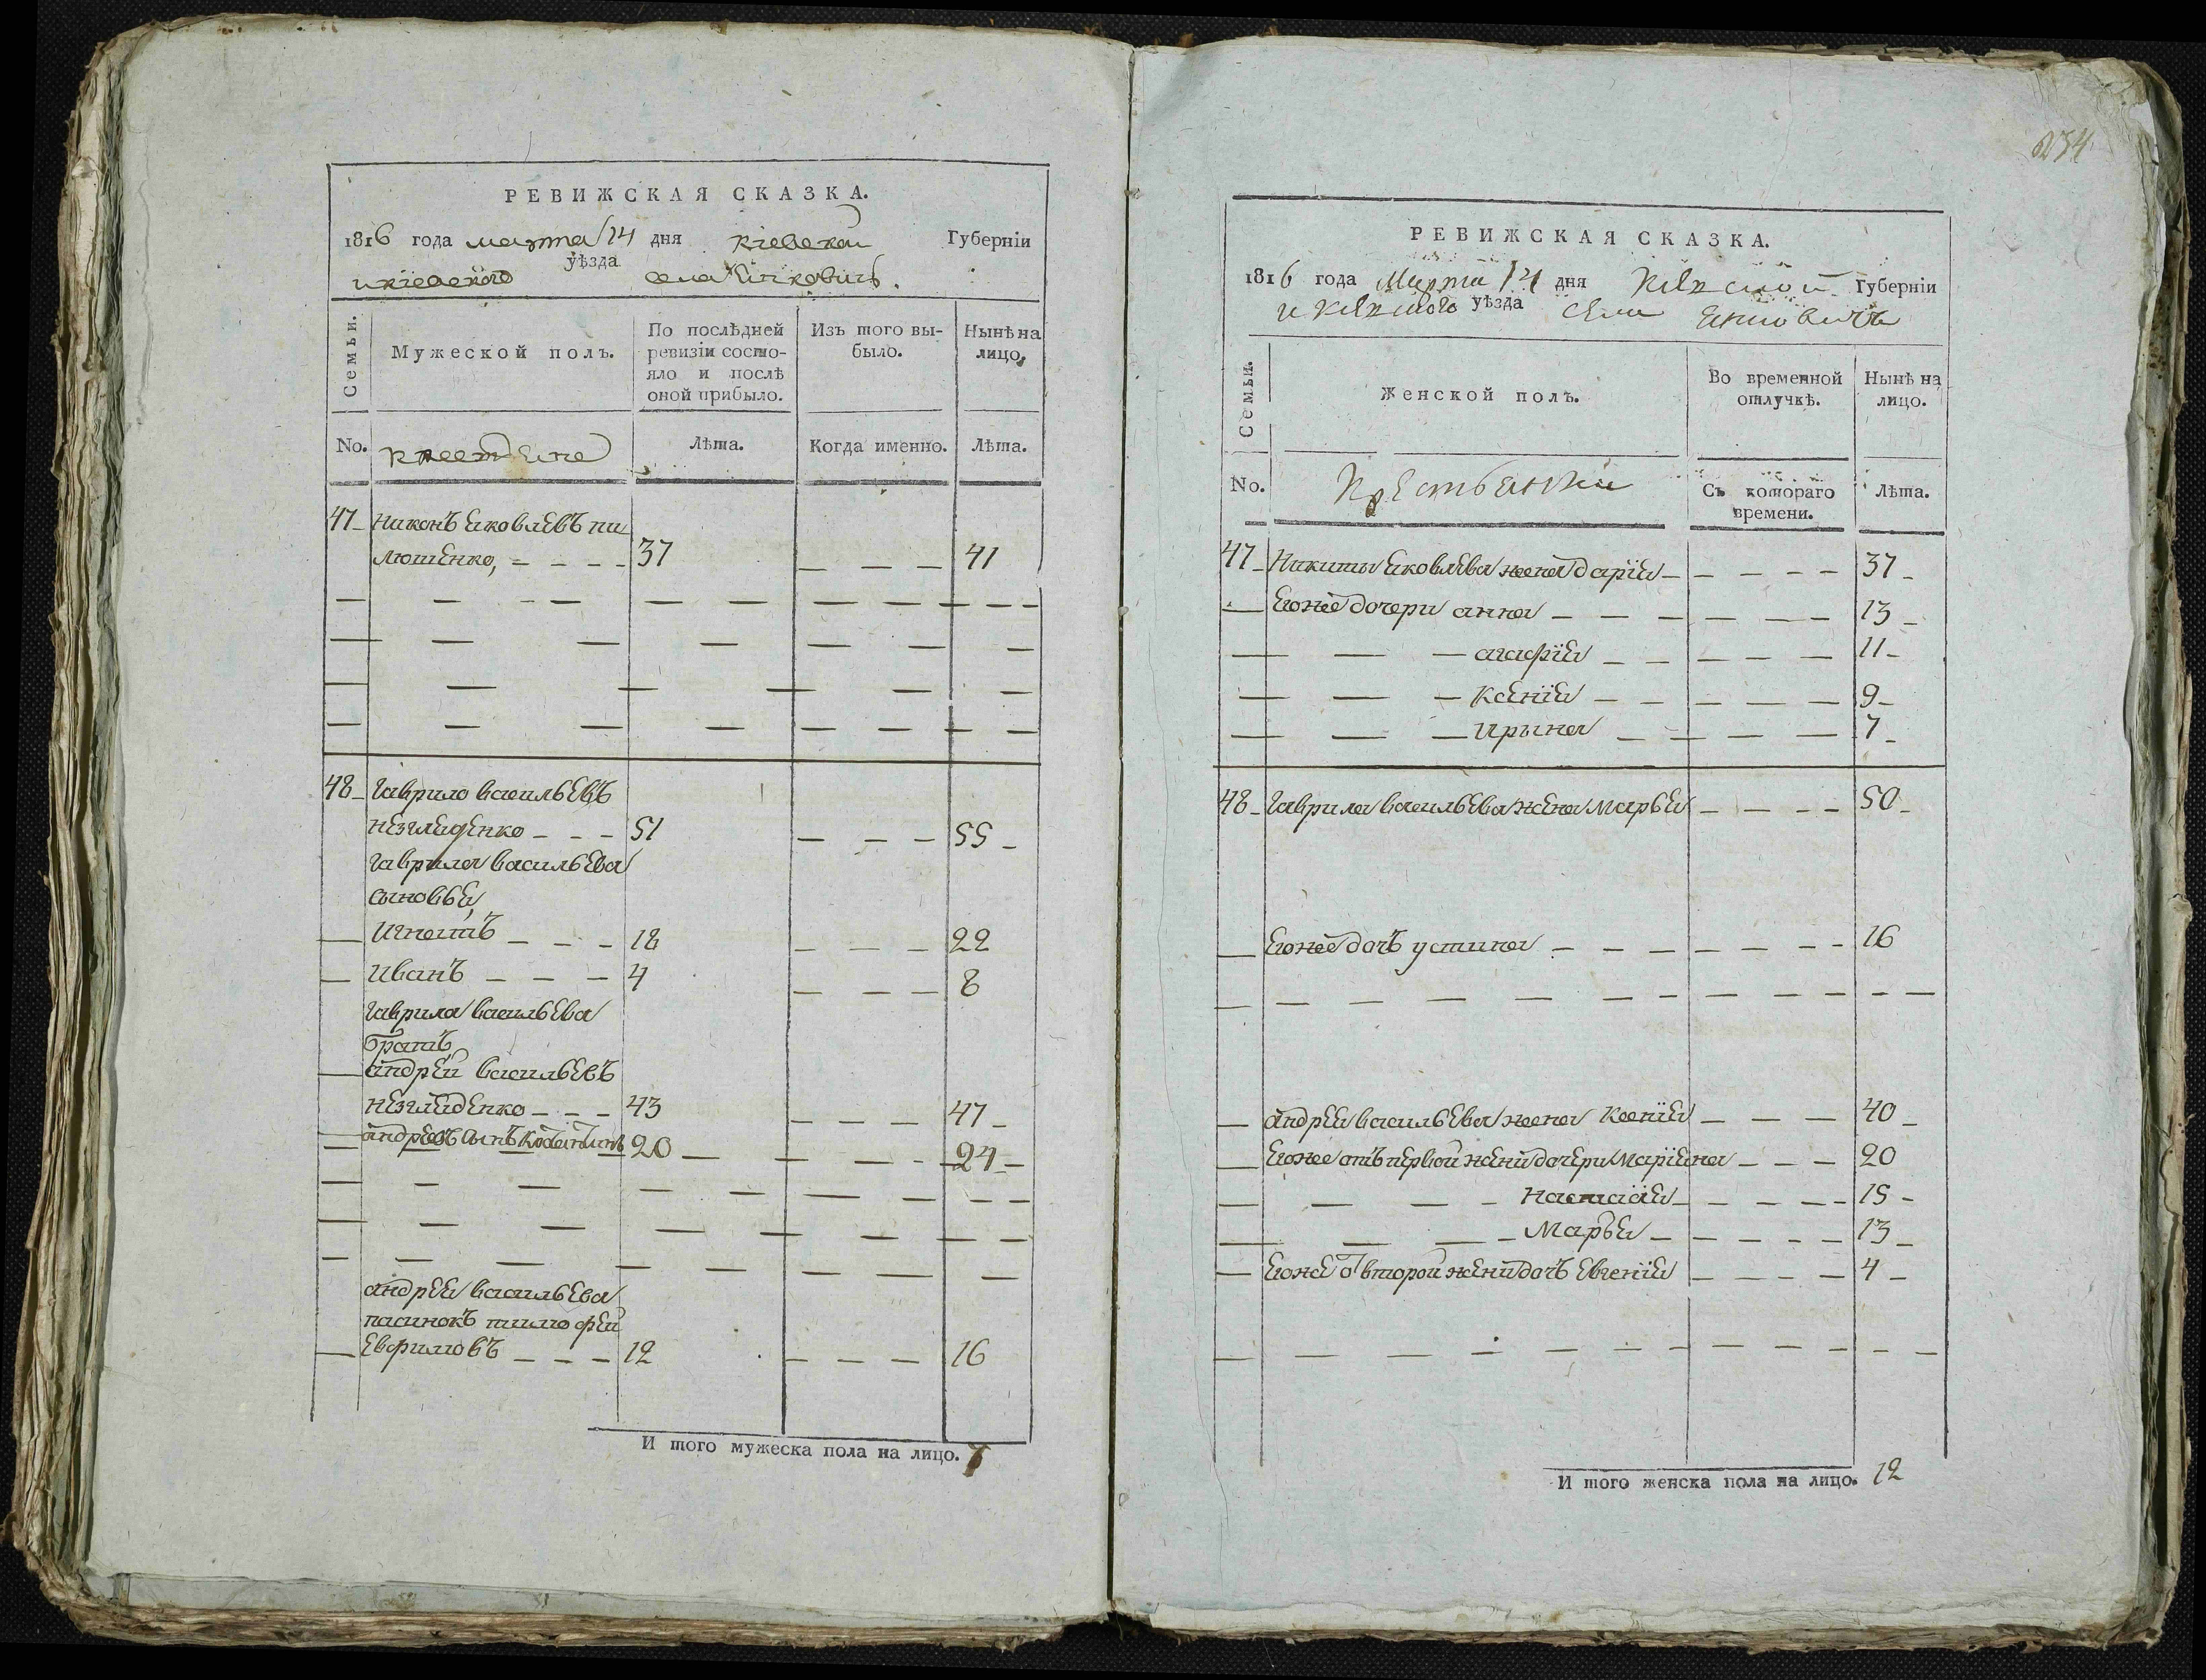 РЕВИЖСКАЯ СКАЗКА.
1816 года марта 14 дня киевской Губерніи
и киевского уѣзда села
Семьи.
Мужеской полъ.
По послѣдней ревизіи состояло и послѣ оной прибыло.
Изъ того выбыло.
Нынѣ на лицо.
No.
Лѣта.
Когда именно.
Лѣта.
47 Яковлевъ пи
люшенко, 37 41
48 Гаврило васильевъ
незгляденко 51 55
Гаврила васильева
сыновья
Игнатъ 18 22
Иванъ 4 8
Гаврила васильева
братъ
андрей васильевъ
незгляденко 43 47
андреевъ сынъ 20 24
андрея васильева
пасинокъ тимофей
Евфимовъ 12 16
И того мужеска пола на лицо. 7
234
РЕВИЖСКАЯ СКАЗКА.
1816 года Марта 14 дня Киевской Губерніи
и Киевского уѣзда села
Семьи.
Женской полъ.
Во временной отлучкѣ.
Нынѣ на лицо.
No.
Крестьянки
Съ котораго времени.
Лѣта.
47 Яковлева жена дарія 37
Егоже дочери анна 13
агафія 11
Ксенія 9
Ирына 7
48 Гаврила васильева жена Марья 50
Егоже дочь устина 16
андрея васильева жена Ксенія 40
Егоже отъ первой жени дочери Маріяна 20
Настасія 15
Марья 13
Егоже о второй жени дочь Евгенія 4
И того женска пола на лицо. 12